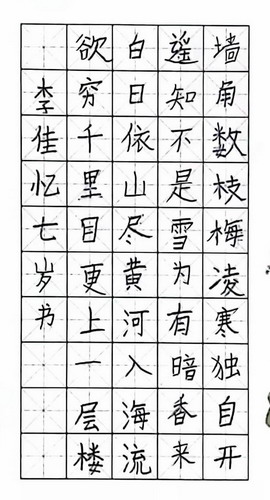 墙角数枝梅凌寒独自开
遥知不是雪为有暗香来
白日依山尽黄河入海流
欲穷千里目更上一层楼
李佳忆七岁书